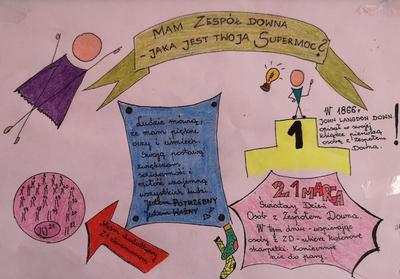 MAM ZESPÓŁ DOWNA
- JAKA JEST TWOJA SUPERMOC?
Ludzie mówią,
że mam piękne
oczy i uśmiech.
Swoją postawą
zwiększam
solidarność i
miłość wzajemną
wszystkich ludzi.
Jestem POTRZEBNY
Jestem WAŻNY
W 1866r.
JOHN LANGDON DOWN
opisał w swojej
książce pierwszą
osobę z Zespołem
Downa.
!
1
21 MARCA
Światowy Dzień
Osób z Zespołem Downa.
W tym dniu - wspierając
osoby z ZD - ubierz kolorowe
skarpetki. Koniecznie
nie do pary
Mam dodatkowy
21 chromosom